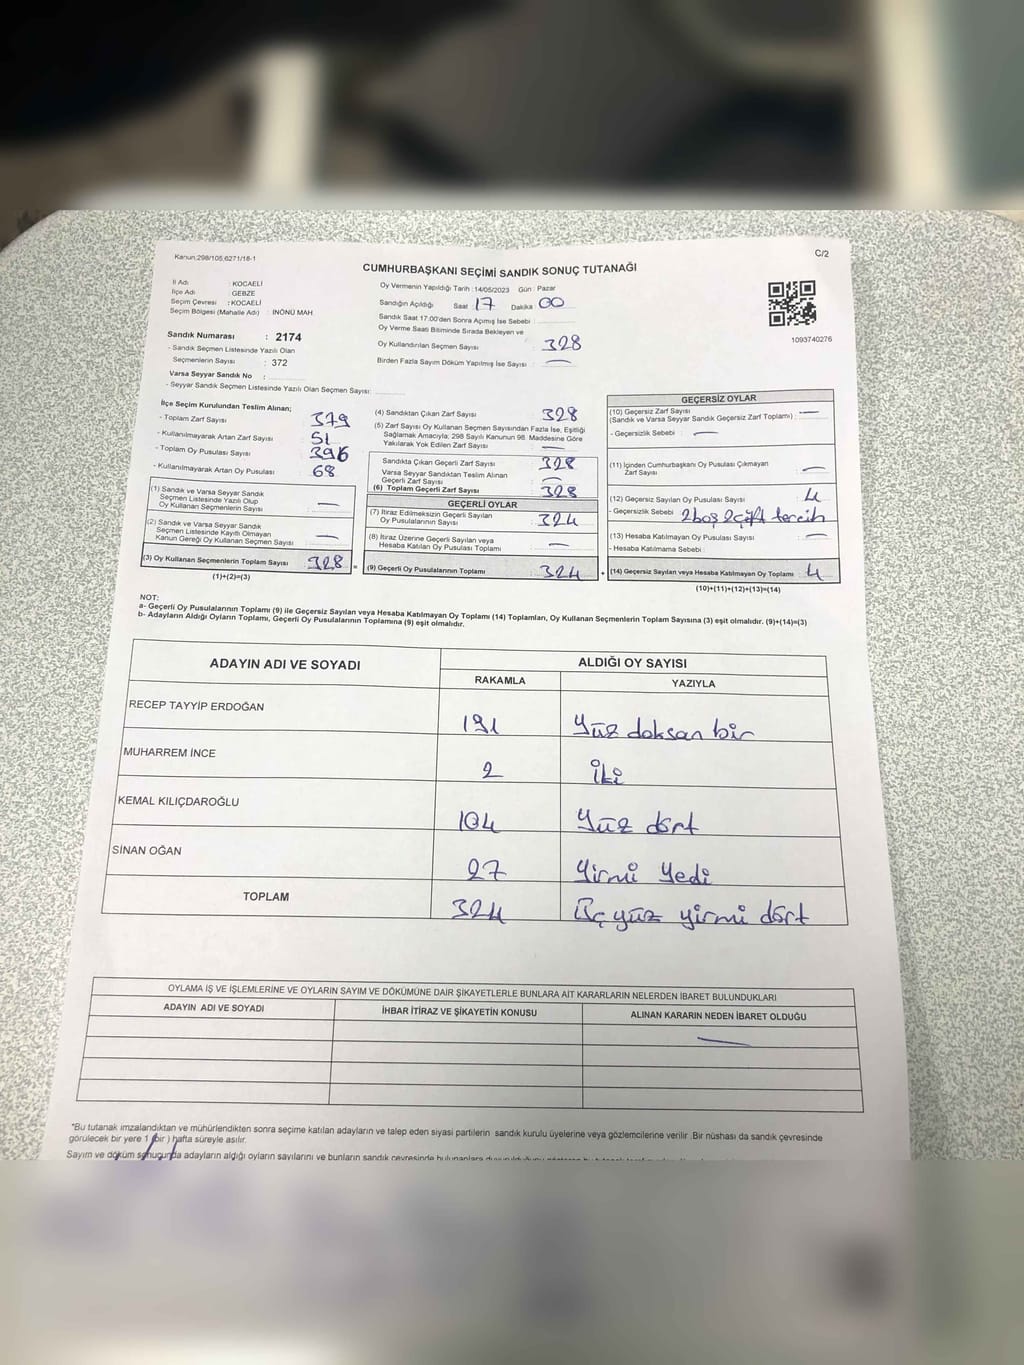 Kanun;298/105,6271/16-1
C/2
CUMHURBAŞKANI SEÇİMİ SANDIK SONUÇ TUTANAĞI
İl Adı : KOCAELİ
İlçe Adı : GEBZE
Seçim Çevresi : KOCAELİ
Seçim Bölgesi (Mahalle Adı) : İNÖNÜ MAH
Sandık Numarası : 2174
- Sandık Seçmen Listesinde Yazılı Olan
Seçmenlerin Sayısı : 372
Varsa Seyyar Sandık No :
- Seyyar Sandık Seçmen Listesinde Yazılı Olan Seçmen Sayısı:
Oy Vermenin Yapıldığı Tarih :14/05/2023 Gün : Pazar
Sandığın Açıldığı Saat 17 Dakika 00
Sandık Saat 17:00'den Sonra Açımış İse Sebebi :
Oy Verme Saati Bitiminde Sırada Bekleyen ve
Oy Kullandırılan Seçmen Sayısı : 328
Birden Fazla Sayım Döküm Yapılmış İse Sayısı : —
1093740276
İlçe Seçim Kurulundan Teslim Alınan;
- Toplam Zarf Sayısı : 379
- Kullanılmayarak Artan Zarf Sayısı : 51
- Toplam Oy Pusulası Sayısı : 396
- Kullanılmayarak Artan Oy Pusulası : 68
(1) Sandık ve Varsa Seyyar Sandık
Seçmen Listesinde Yazılı Olup
Oy Kullanan Seçmenlerin Sayısı : —
(2) Sandık ve Varsa Seyyar Sandık
Seçmen Listesinde Kayıtlı Olmayan
Kanun Gereği Oy Kullanan Seçmen Sayısı : —
(3) Oy Kullanan Seçmenlerin Toplam Sayısı 328
(1)+(2)=(3)
(4) Sandıktan Çıkan Zarf Sayısı : 328
(5) Zarf Sayısı Oy Kullanan Seçmen Sayısından Fazla İse, Eşitliği
Sağlamak Amacıyla; 298 Sayılı Kanunun 98. Maddesine Göre
Yakılarak Yok Edilen Zarf Sayısı : —
Sandıkta Çıkan Geçerli Zarf Sayısı : 328
Varsa Seyyar Sandıktan Teslim Alınan
Geçerli Zarf Sayısı : —
(6) Toplam Geçerli Zarf Sayısı : 328
GEÇERLİ OYLAR
(7) İtiraz Edilmeksizin Geçerli Sayılan
Oy Pusulalarının Sayısı : 324
(8) İtiraz Üzerine Geçerli Sayılan veya
Hesaba Katılan Oy Pusulası Toplamı : —
(9) Geçerli Oy Pusulalarının Toplamı : 324
GEÇERSİZ OYLAR
(10) Geçersiz Zarf Sayısı
(Sandık ve Varsa Seyyar Sandık Geçersiz Zarf Toplamı) : —
- Geçersizlik Sebebi : —
(11) İçinden Cumhurbaşkanı Oy Pusulası Çıkmayan
Zarf Sayısı : —
(12) Geçersiz Sayılan Oy Pusulası Sayısı : 4
- Geçersizlik Sebebi : 2 boş 2 çift tercih
(13) Hesaba Katılmayan Oy Pusulası Sayısı : —
- Hesaba Katılmama Sebebi :
(14) Geçersiz Sayılan veya Hesaba Katılmayan Oy Toplamı : 4
(10)+(11)+(12)+(13)=(14)
NOT:
a- Geçerli Oy Pusulalarının Toplamı (9) ile Geçersiz Sayılan veya Hesaba Katılmayan Oy Toplamı (14) Toplamları, Oy Kullanan Seçmenlerin Toplam Sayısına (3) eşit olmalıdır. (9)+(14)=(3)
b- Adayların Aldığı Oyların Toplamı, Geçerli Oy Pusulalarının Toplamına (9) eşit olmalıdır.
ADAYIN ADI VE SOYADI ALDIĞI OY SAYISI
RAKAMLA YAZIYLA
RECEP TAYYİP ERDOĞAN 191 Yüz doksan bir
MUHARREM İNCE 2 İki
KEMAL KILIÇDAROĞLU 104 Yüz dört
SİNAN OĞAN 27 Yirmi Yedi
TOPLAM 324 Üç yüz yirmi dört
OYLAMA İŞ VE İŞLEMLERİNE VE OYLARIN SAYIM VE DÖKÜMÜNE DAİR ŞİKAYETLERLE BUNLARA AİT KARARLARIN NELERDEN İBARET BULUNDUKLARI
ADAYIN ADI VE SOYADI İHBAR İTİRAZ VE ŞİKAYETİN KONUSU ALINAN KARARIN NEDEN İBARET OLDUĞU
—
*Bu tutanak imzalandıktan ve mühürlendikten sonra seçime katılan adayların ve talep eden siyasi partilerin sandık kurulu üyelerine veya gözlemcilerine verilir .Bir nüshası da sandık çevresinde
görülecek bir yere 1 (bir ) hafta süreyle asılır.
Sayım ve döküm sonucunda adayların aldığı oyların sayılarını ve bunların sandık çevresinde bulunanlara